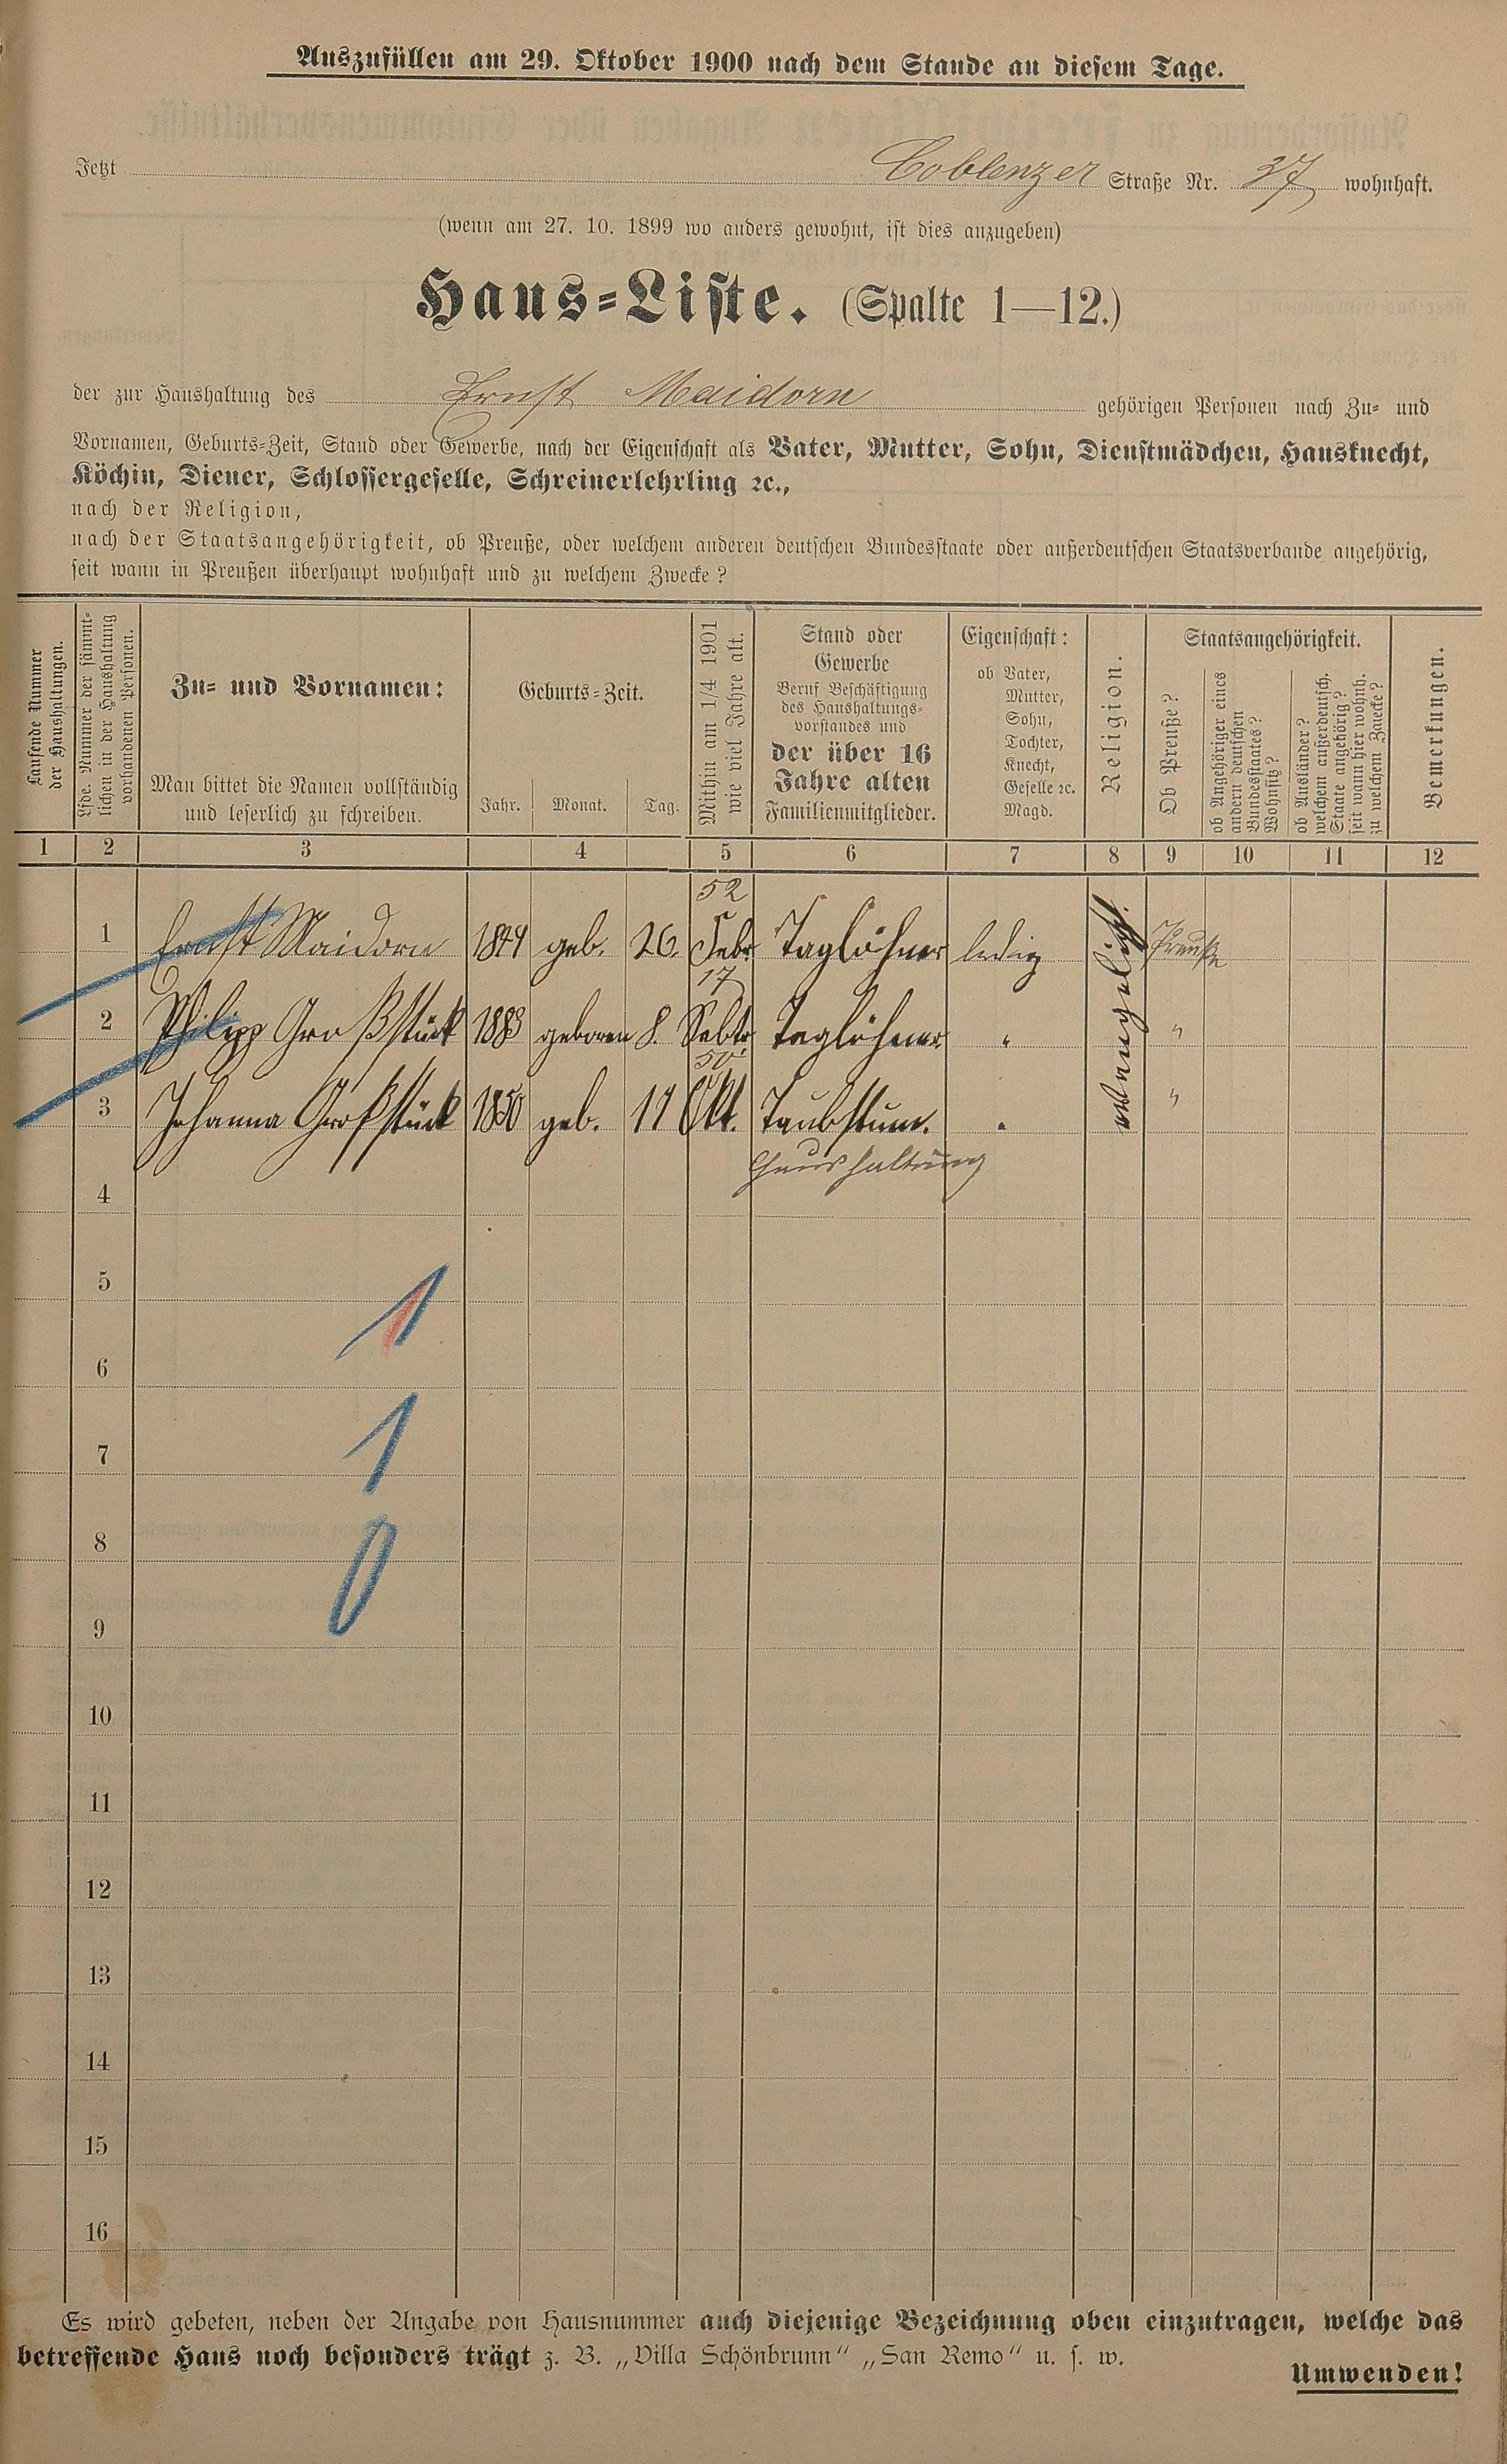 Auszufüllen am 29. Oktober 1900 nach dem Stande an diesem Tage.
Jetzt Coblenzer Straße Nr. 37 wohnhaft.
(wenn am 27. 10. 1899 wo anders gewohnt, ist dies anzugeben)
Haus-Liste. (Spalte 1—12.)
der zur Haushaltung des Ernst Maidorn gehörigen Personen nach Zu- und
Vornamen, Geburts-Zeit, Stand oder Gewerbe, nach der Eigenschaft als Vater, Mutter, Sohn, Dienstmädchen, Hausknecht,
Köchin, Diener, Schlossergeselle, Schreinerlehrling ꝛc.,
nach der Religion,
nach der Staatsangehörigkeit, ob Preuße, oder welchem anderen deutschen Bundesstaate oder außerdeutschen Staatsverbande angehörig,
seit wann in Preußen überhaupt wohnhaft und zu welchem Zwecke?
Laufende Nummer
der Haushaltungen.
Lfde. Nummer der sämmt-
lichen in der Haushaltung
vorhandenen Personen.
Zu- und Vornamen:
Man bittet die Namen vollständig
und leserlich zu schreiben.
Geburts-Zeit.
Jahr. Monat. Tag.
Mithin am 1/4 1901
wie viel Jahre alt.
Stand oder
Gewerbe
Beruf Beschäftigung
des Haushaltungs-
vorstandes und
der über 16
Jahre alten
Familienmitglieder.
Eigenschaft:
ob Vater,
Mutter,
Sohn,
Tochter,
Knecht,
Geselle ꝛc.
Magd.
Religion.
Staatsangehörigkeit.
Ob Preuße?
ob Angehöriger eines
andern deutschen
Bundesstaates?
Wohnsitz?
ob Ausländer?
welchem außerdeutsch.
Staate angehörig?
seit wann hier wohnh.
zu welchem Zwecke?
Bemerkungen.
1 2 3 4 5 6 7 8 9 10 11 12
52
1 Ernst Maidorn 1849 geb. 26. Febr Taglöhner ledig evangelisch. Preuße
17
2 Philipp Großstück 1883 geboren 8. Sebtr. Taglöhner " "
50
3 Johanna Großstück 1850 geb. 11 Okt. Taubstum. " "
Haushaltung
4
5
1
6
7
1
8
0
9
10
11
12
13
14
15
16
Es wird gebeten, neben der Angabe von Hausnummer auch diejenige Bezeichnung oben einzutragen, welche das
betreffende Haus noch besonders trägt z. B. „Villa Schönbrunn" „San Remo" u. s. w.
Umwenden!